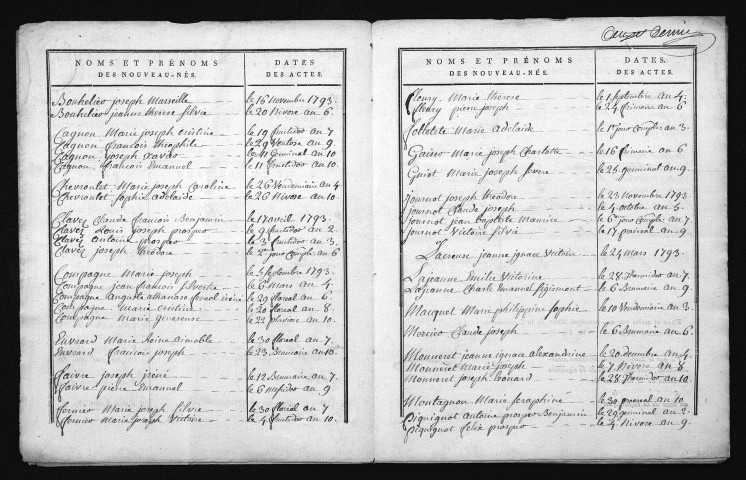 NOMS ET PRÉNOMS
DES NOUVEAU-NÉS.
DATES
DES ACTES.
Bouhelier joseph Marseille le 16 novembre 1793.
Bouhelier jeanne therese Silvie le 20 Nivose an 6.
Cagnon Marie joseph Cristine le 19 fructidor an 7
Cagnon francois Theophile le 29 Ventose an 9.
Cagnon joseph Xavier le 11 Germinal an 10
Cagnon francois Emanuel le 11 fructidor an 10.
Chevroulet Marie joseph Caroline le 26 Vendemiaire an 4
Chevroulet Sophie adelaide le 26 Nivose an 10
Clavez Claude francois Benjamin le 17 avril 1793.
Clavez Louis joseph prospere le 9 fructidor an 2.
Clavez antoine prosper le 3 fructidor an 3.
Clavez joseph Theodore le 2e jour Comple: an 6
Compagne Marie joseph le 5 septembre 1793.
Compagne jean francois Silvestre le 6 Mars an 4.
Compagne auguste athanase le 29 floreal an 6.
Compagne Marie Cristine le 20 floreal an 8.
Compagne Marie Genereuse le 22 pluviose an 10.
Euvrard Marie aimable le 30 floreal an 7.
Euvrard francois joseph le 23 Brumaire an 10.
faivre joseph irené le 12 Brumaire an 7
faivre pierre Emanuel le 6 Messidor an 9.
fernier Marie joseph Silvie le 30 floreal an 7
fernier Marie joseph Victoire le 4 fructidor an 10.
NOMS ET PRÉNOMS
DES NOUVEAU-NÉS.
DATES
DES ACTES.
fleury Marie therese le 1 septembre an 4.
fleury pierre joseph le 24 frimaire an 6
Folletete Marie adelaide le 1er jour Comple: an 3.
Marie joseph Charlotte le 16 frimaire an 6
Guiot Marie joseph le 25 germinal an 9.
Journot joseph theodore le 23 novembre 1793.
Journot Claude joseph le 4 octobre an 5
Journot jean baptiste Maurice le 6e jour Comple: an 7
Journot Victoire Silvie le 17 prairial an 9.
Lacreuse jeanne ignace Victoire le 24 mars 1793.
Lajeanne Emilie Victorine le 28 thermidor an 7.
Lajeanne Charle Emanuel Sigismont le 6 Brumaire an 9.
Macquet Marie philippine Sophie le 10 Vendemiaire an 3.
Mercier Claude joseph le 6 Brumaire an 6.
Monneret jeanne ignace alexandrine le 20 decembre an 4.
Monneret Marie joseph le 7 Nivose an 8.
Monneret joseph Leonard le 28 thermidor an 10
Montagnon Marie Seraphine le 30 prairial an 10.
Piquignot antoine prosper Benjamin le 29 germinal an 2.
Piquignot felix prosper le 4 Nivose an 9.